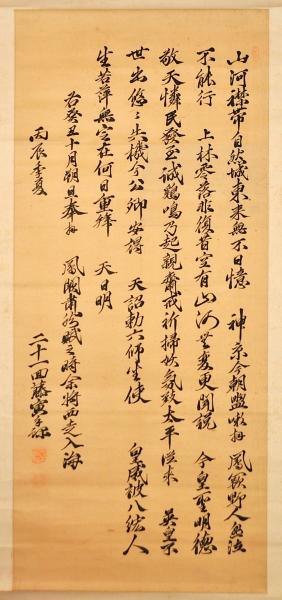 山河襟帶自然城東來無不日憶　神京今朝盥嗽拜　鳳闕野人悲泣
不能行　上林零落非復昔空有山河無變更聞說　今皇聖明德
敬天憐民發至誠鷄鳴乃起親齋戒祈掃妖氛致太平從來　英皇不
世出悠々失機今公卿安得　天詔勅六師坐使　皇威被八紘人
生若萍無定在何日重拜　天日明
右癸丑十月朔旦奉拜　鳳闕肅然賦之時余將西走入海
丙辰季夏
二十一回藤寅手錄